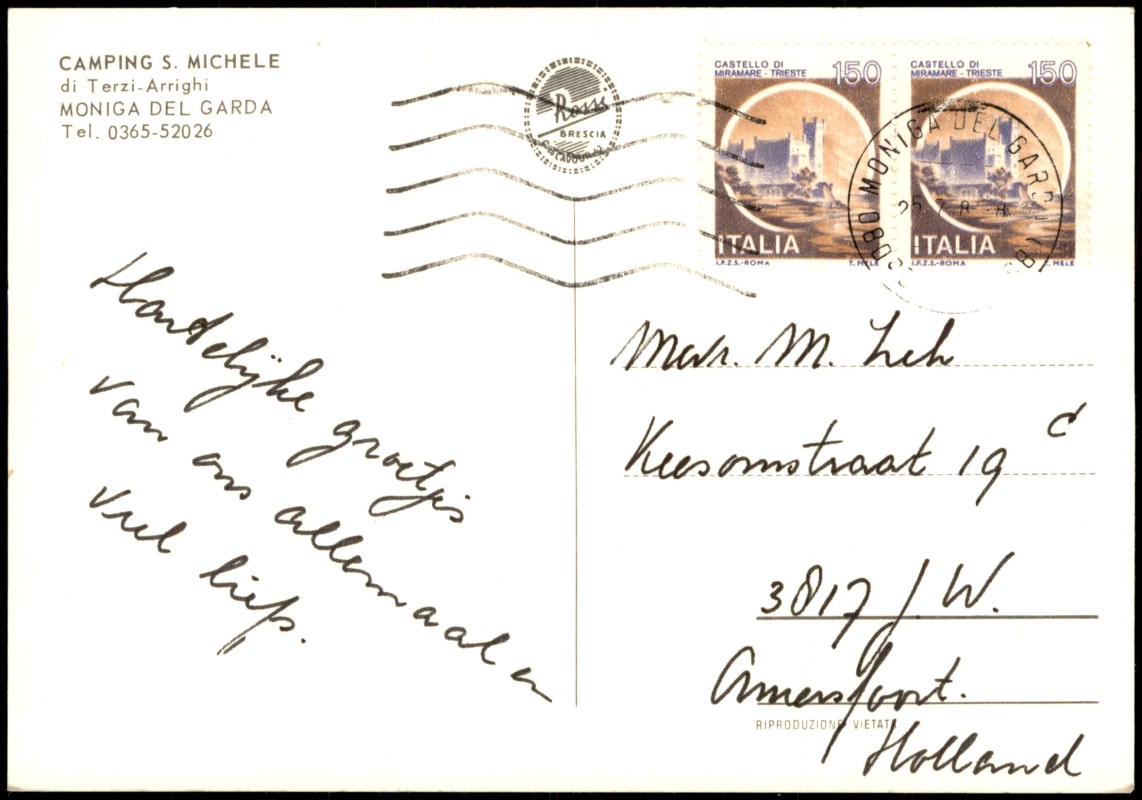 CAMPING S. MICHELE
di Terzi-Arrighi
MONIGA DEL GARDA
Tel. 0365-52026
Rossi
BRESCIA
CASTELLO DI
MIRAMARE - TRIESTE
150
ITALIA
I.P.Z.S.-ROMA
T. MELE
CASTELLO DI
MIRAMARE - TRIESTE
150
ITALIA
I.P.Z.S.-ROMA
T. MELE
MONIGA DEL GARDA
Hartelijke groetjes
van ons allemaal en
veel liefs.
Mevr. M.
Keesomstraat 19 c
3817 J.W.
Amersfoort.
Holland
RIPRODUZIONE VIETATA